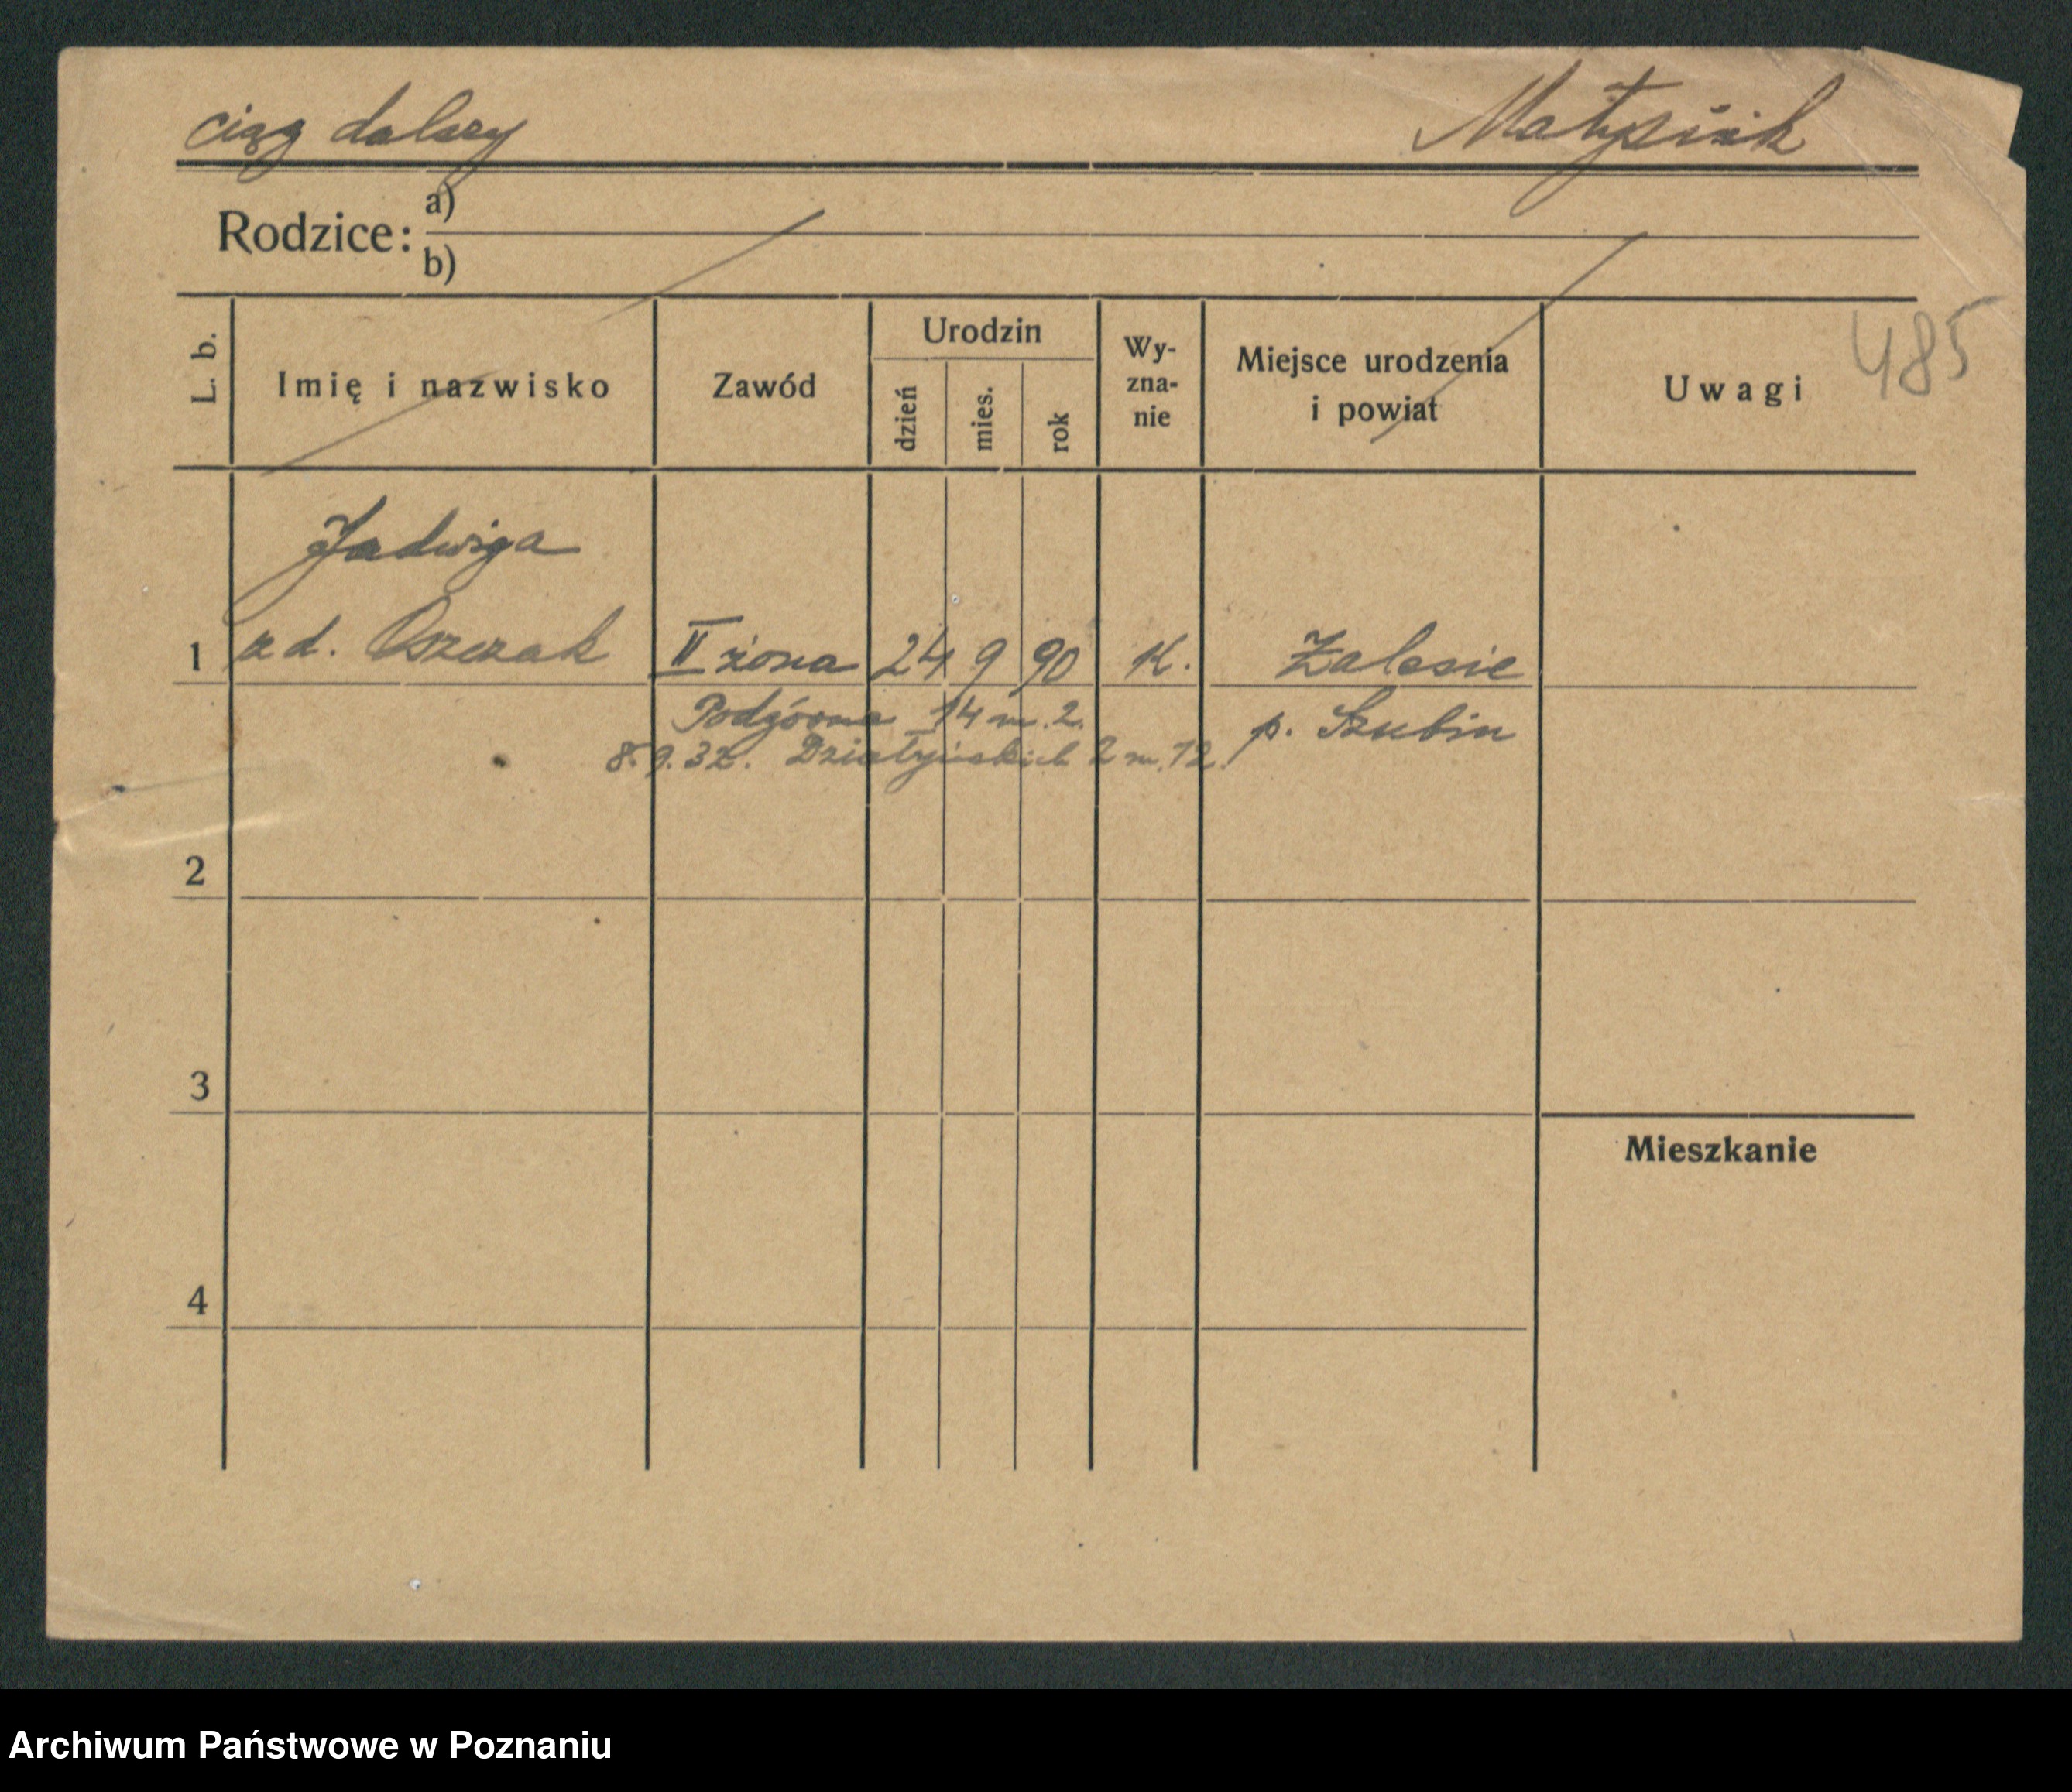 ciąg dalszy Matysiak
Rodzice: a)
b)
485
L. b. Imię i nazwisko Zawód Urodzin dzień mies. rok Wy-zna-nie Miejsce urodzenia i powiat Uwagi
Jadwiga
1 z d. Oszczak II żona 24 9 90 K. Zalesie
Podgórna 14 m. 2. p. Szubin
8.9.32. Działyńskich 2 m. 12.
2
3
Mieszkanie
4
Archiwum Państwowe w Poznaniu